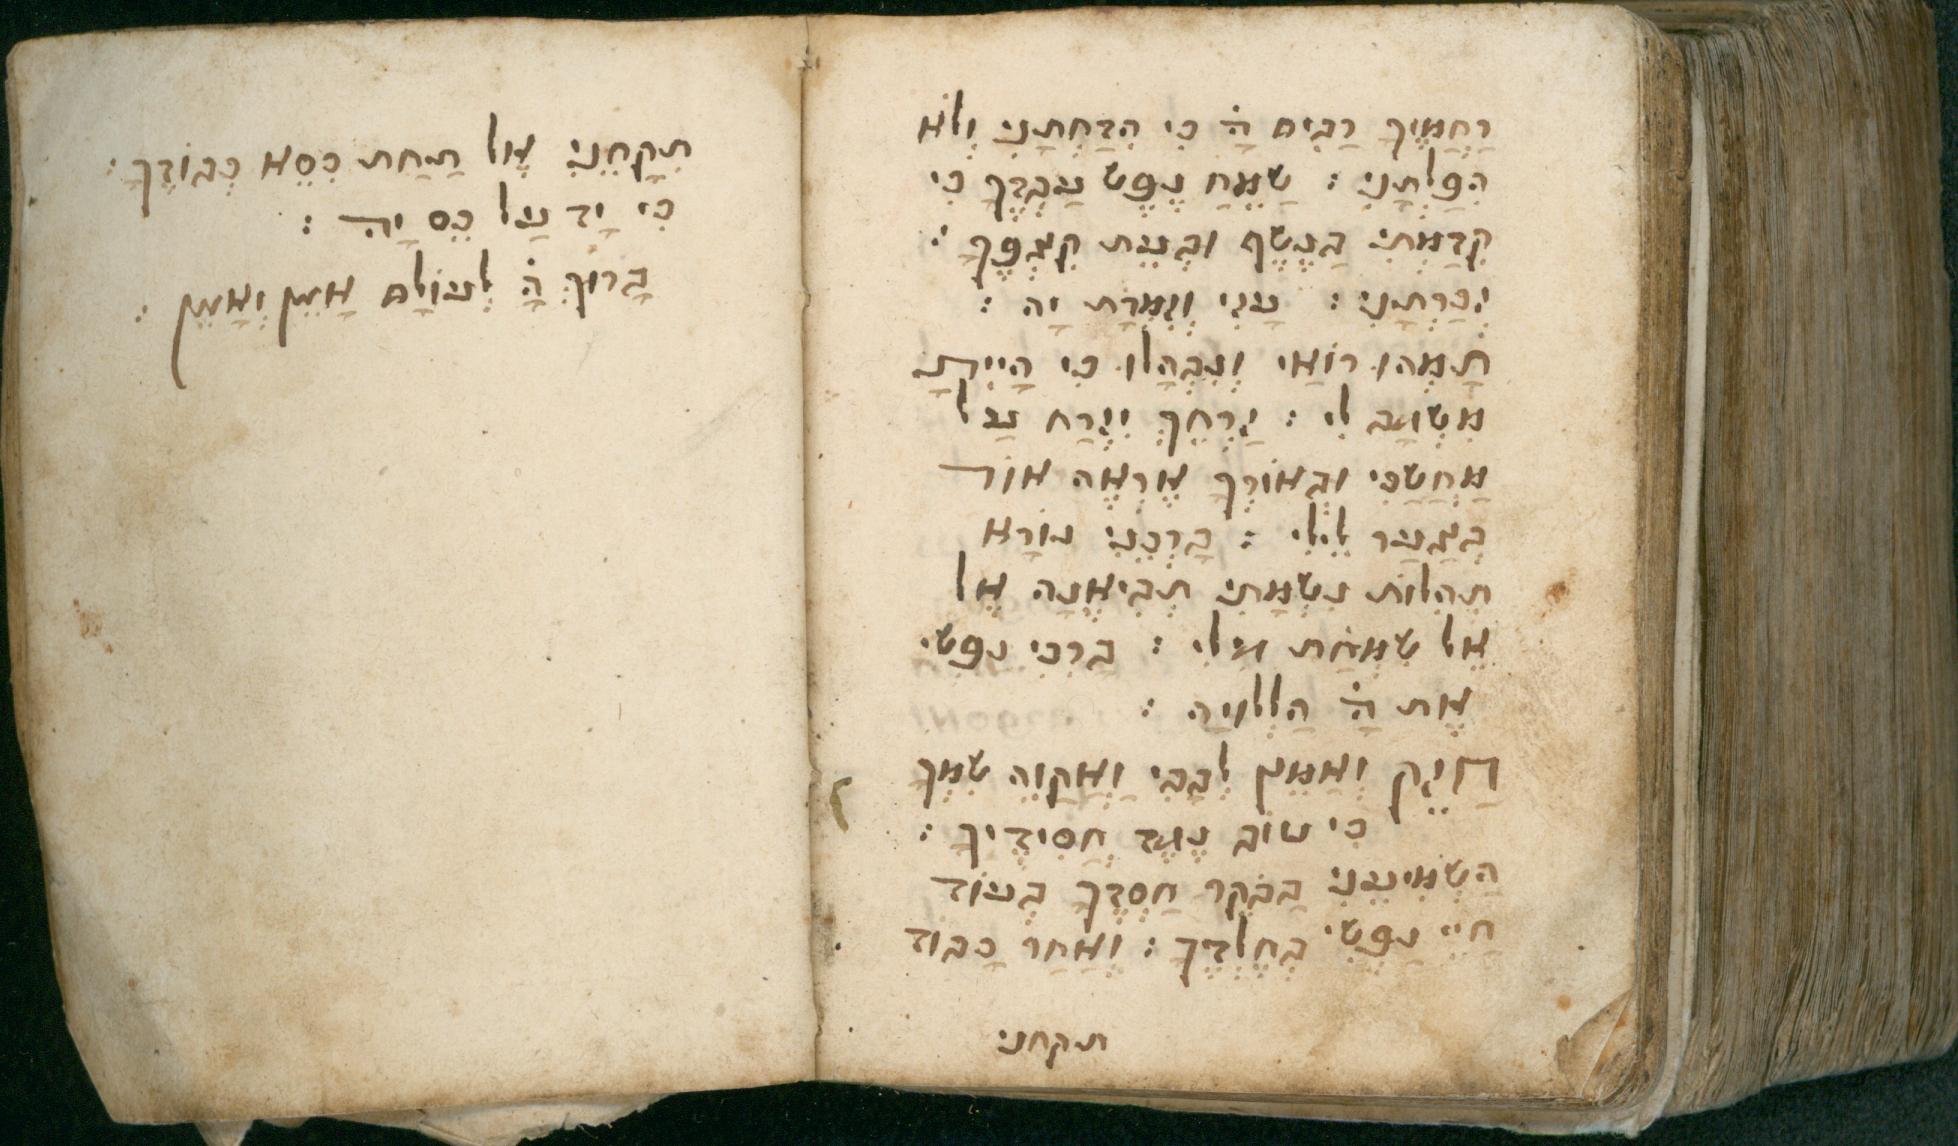 רַחֲמֶיךָ רַבִּים הָ' כִּי הִדַּחְתָּנִי וְלֹא
הִפַּלְתָּנִי : שַׂמֵּחַ נֶפֶשׁ עַבְדֶּךָ כִּי
קִדַּמְתִּי בַנֶּשֶׁף וּבְעֵת קִצְפֶּךָ :
זְכַרְתָּנִי : עָזִּי וְזִמְרָת יָהּ :
תָּמְהוּ רוֹאַי וְנִבְהָלוּ כִּי הָיִיתָ
מִשְׂגָּב לִי : יַרְחֵךְ יִזְרַח עַל
מַחֲשַׁכִּי וּבְאוֹרְךָ אֶרְאֶה אוֹר
בְּצַעַר לֵילִי : בָּרְכֵנִי נוֹרָא
תְהִלּוֹת נִשְׁמָתִי תְּבִיאֶנָה אֶל
אֵל שִׂמְחַת גִּילִי : בָּרְכִי נַפְשִׁי
אֶת הָ' הַלְלוּיַהּ :
חַזֵּק וְאַמֵּץ לְבָבִי וַאֲקַוֶּה שִׁמְךָ
כִּי טוֹב נֶגֶד חֲסִידֶיךָ :
הַשְׁמִיעֵנִי בַבֹּקֶר חַסְדֶּךָ בְּעוֹד
חַיֵּי נַפְשִׁי בְּחֶלְדֶּךָ : וְאַחַר כָּבוֹד
תקחני
תִּקָּחֵנִי אֶל תַּחַת כִּסֵּא כְבוֹדֶךָ :
כִּי יָד עַל כֵּס יָהּ :
בָּרוּךְ הָ' לְעוֹלָם אָמֵן וְאָמֵן :